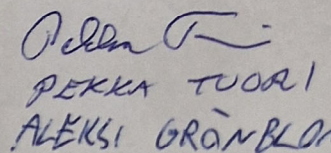 Pekka T
PEKKA TUORI
ALEKSI GRÖNBLOM